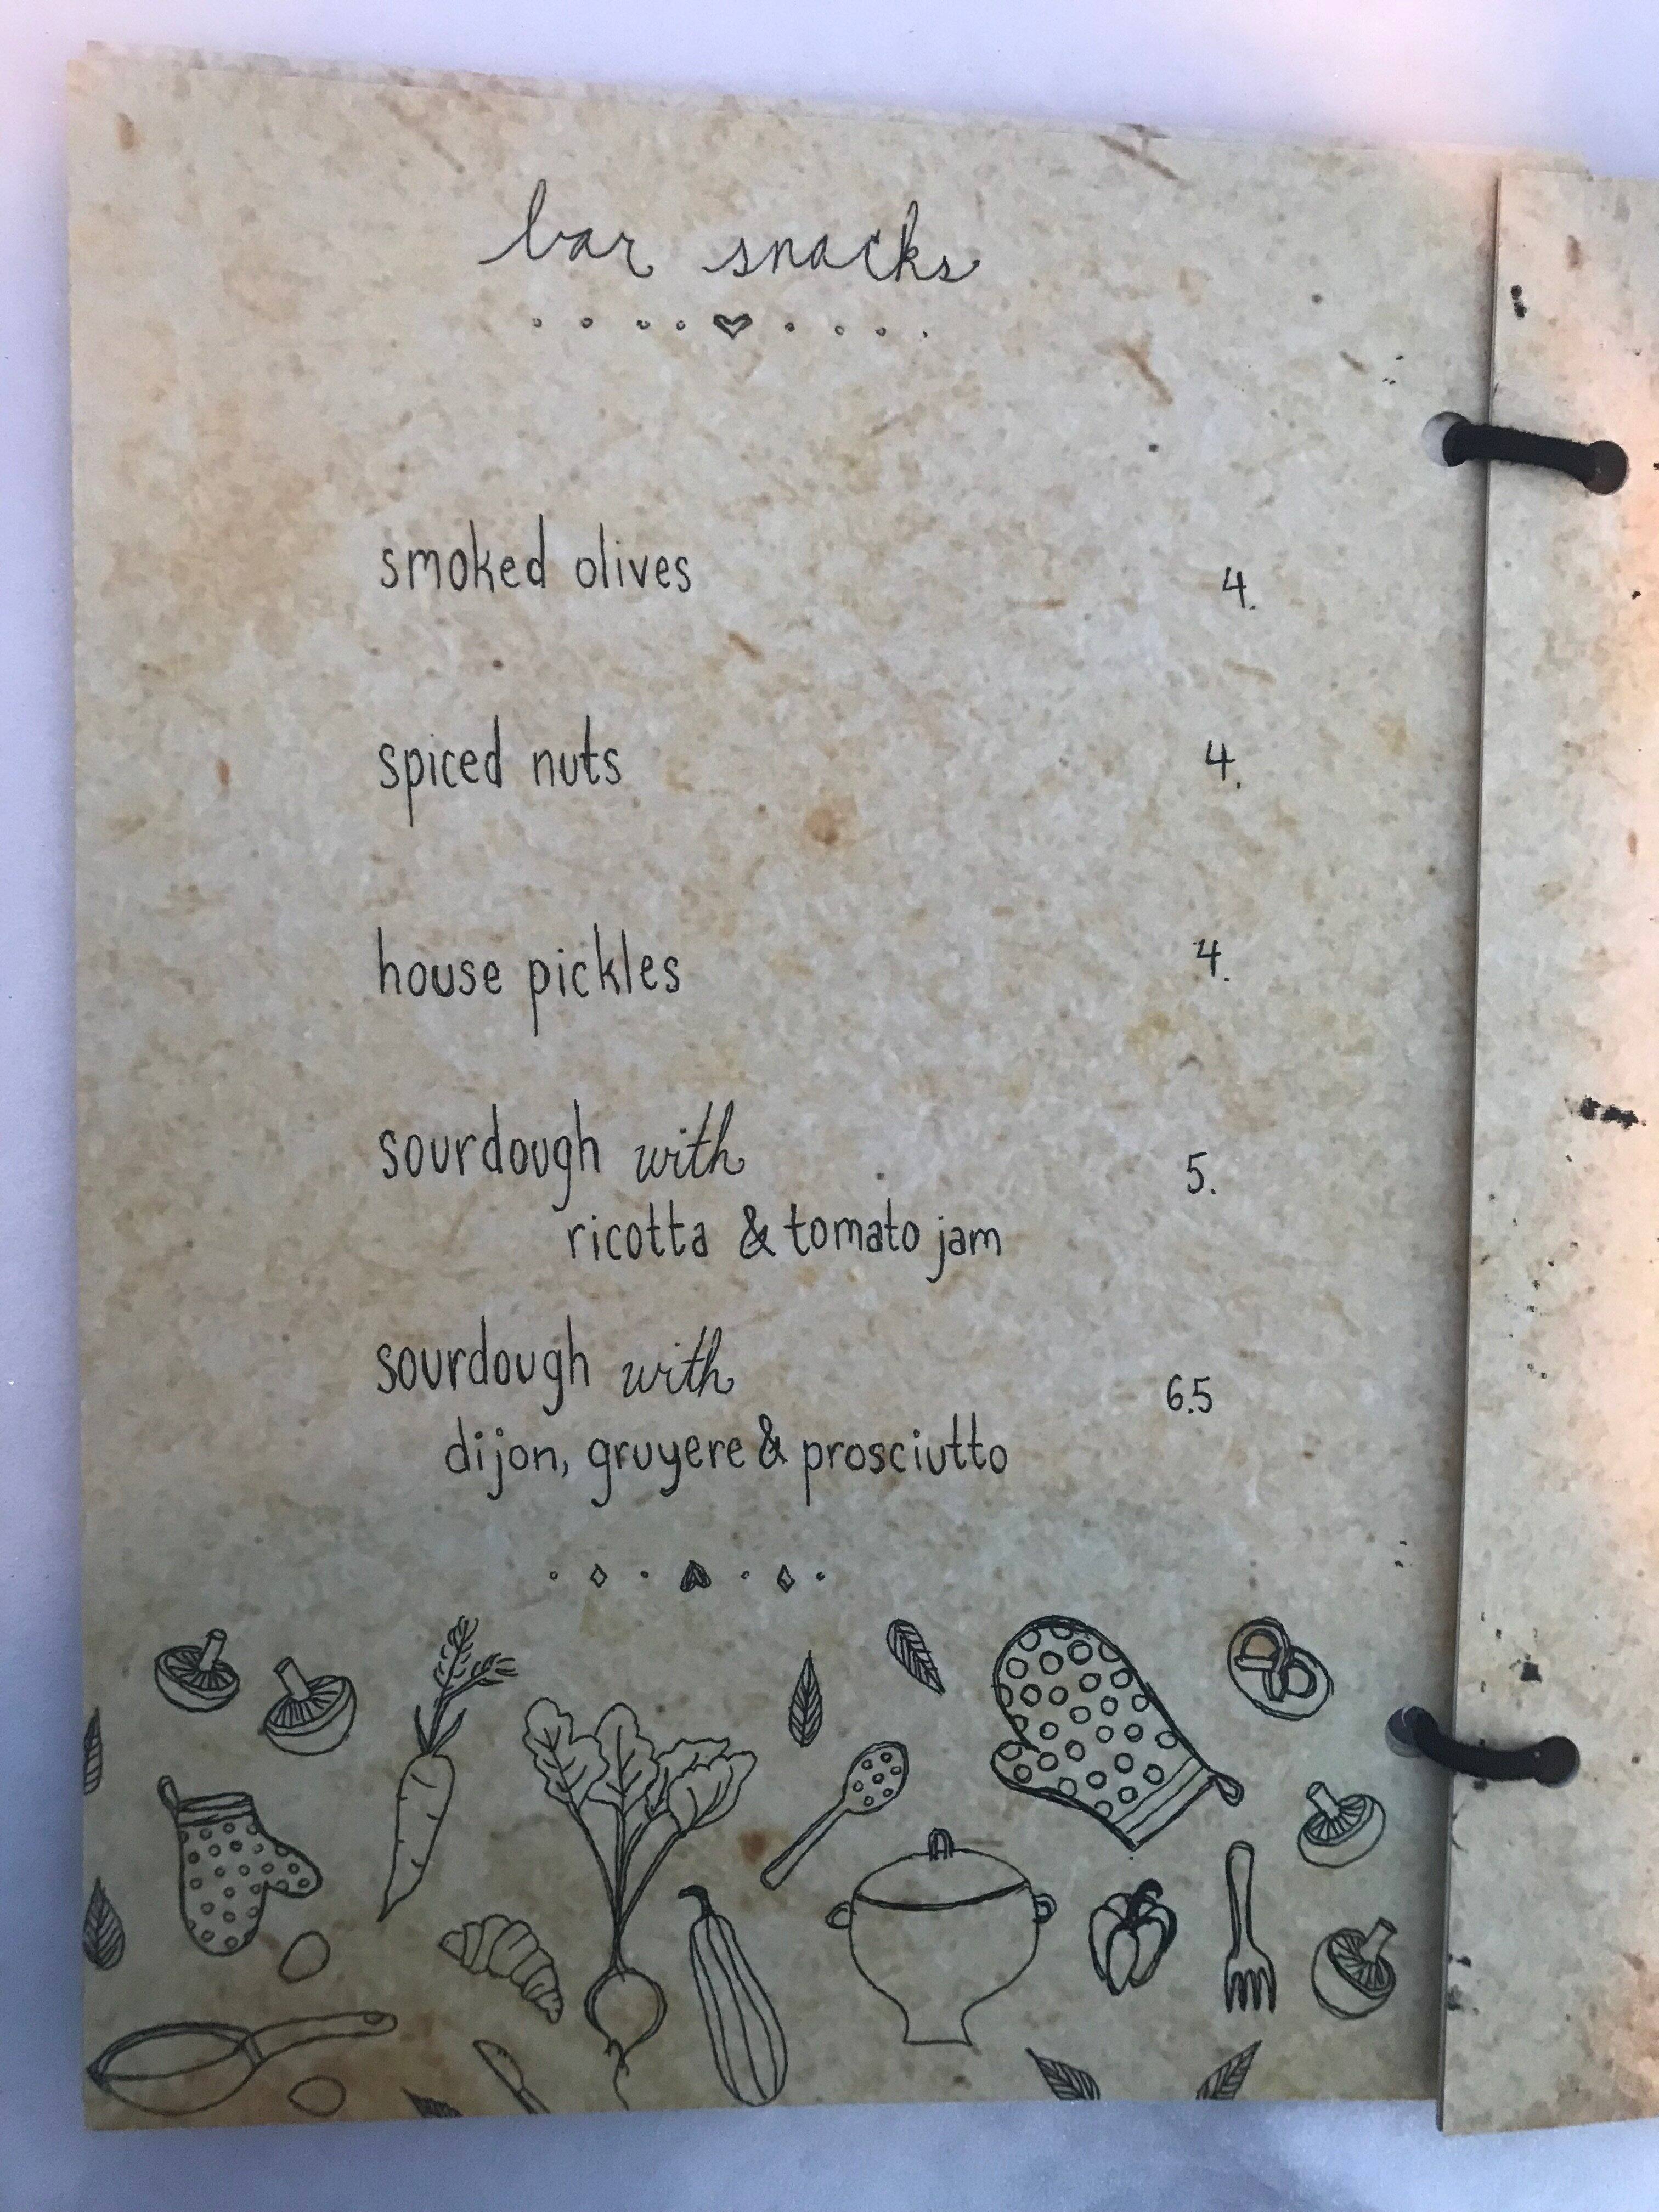 bar snacks
smoked olives 4.
spiced nuts 4.
house pickles 4.
sourdough with 5.
ricotta & tomato jam
sourdough with 6.5
dijon, gruyere & prosciutto